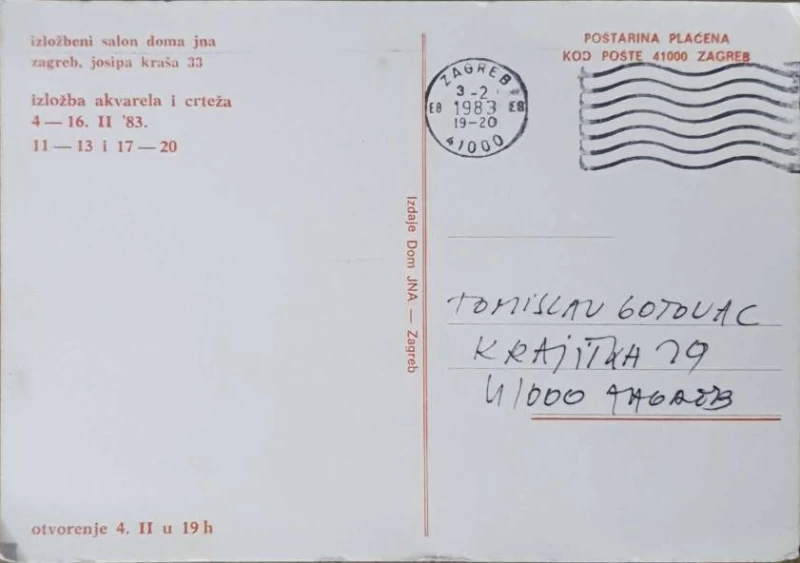 izložbeni salon doma jna
zagreb, josipa kraša 33
izložba akvarela i crteža
4 — 16. II '83.
11 — 13 i 17 — 20
otvorenje 4. II u 19 h
Izdaje Dom JNA — Zagreb
POŠTARINA PLAĆENA
KOD POŠTE 41000 ZAGREB
ZAGREB
3 -2
E8 1983 E8
19-20
41000
TOMISLAV GOTOVAC
KRAJIŠKA 29
41000 ZAGREB